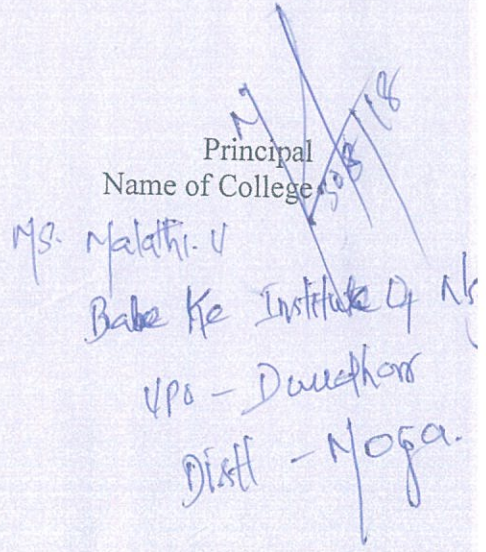 Principal
Name of College
Ms. Malathi. V
Babe Ke Institute Of
VPO - Daudhar
Distt - Moga.